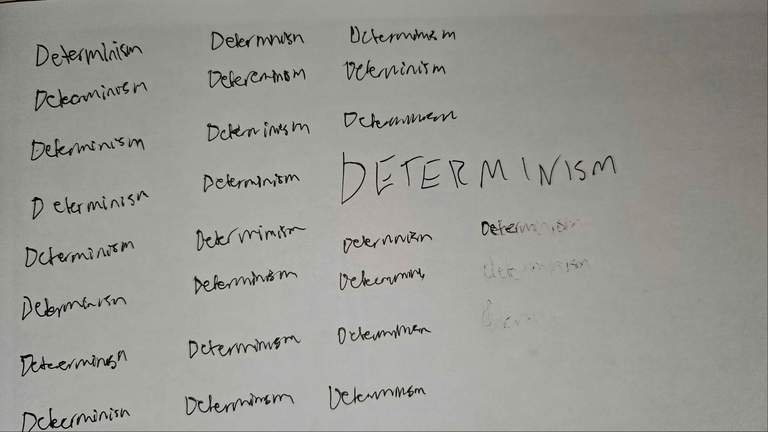 Determinism Determnisn Determinism
Determinism Deterernism Determinism
Determinism Deterinism Determinism
Determinism Determinism DETERMINISM
Determinism Determinism Determnism Determinism
Determinism Determinism Determins determinism
Deteerminisn Determinism Determinism
Determinisn Determinism Determinism